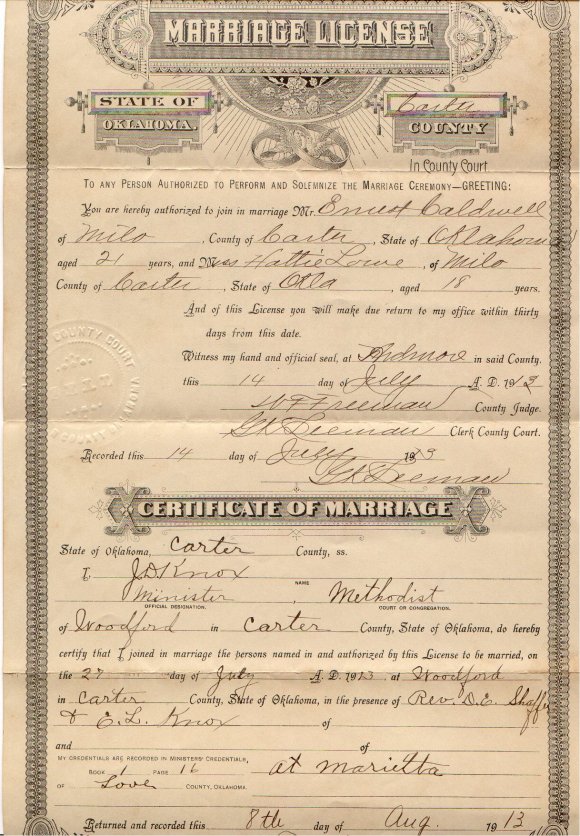 MARRIAGE LICENSE
STATE OF OKLAHOMA. Carter COUNTY
In County Court
TO ANY PERSON AUTHORIZED TO PERFORM AND SOLEMNIZE THE MARRIAGE CEREMONY—GREETING:
You are hereby authorized to join in marriage Mr. Ernest Caldwell
of Milo, County of Carter, State of Oklahoma
aged 21 years, and Miss Hattie Lowe, of Milo
County of Carter, State of Okla, aged 18 years.
And of this License you will make due return to my office within thirty
days from this date.
Witness my hand and official seal, at Ardmore in said County.
this 14 day of July A. D. 1913
W F Freeman County Judge.
Clerk County Court.
Recorded this 14 day of July 1913
CERTIFICATE OF MARRIAGE
State of Oklahoma, Carter County, ss.
I, J D Knox
NAME
Minister Methodist
OFFICIAL DESIGNATION. COURT OR CONGREGATION.
of Woodford in Carter County, State of Oklahoma, do hereby
certify that I joined in marriage the persons named in and authorized by this License to be married, on
the 27 day of July A. D. 1913 at Woodford
in Carter County, State of Oklahoma, in the presence of Rev. D. E. Shaffer
& E. L. Knox of
and of
MY CREDENTIALS ARE RECORDED IN MINISTERS' CREDENTIALS,
BOOK 1 PAGE 16 at Marietta
OF Love COUNTY, OKLAHOMA.
Returned and recorded this 8th day of Aug. 1913